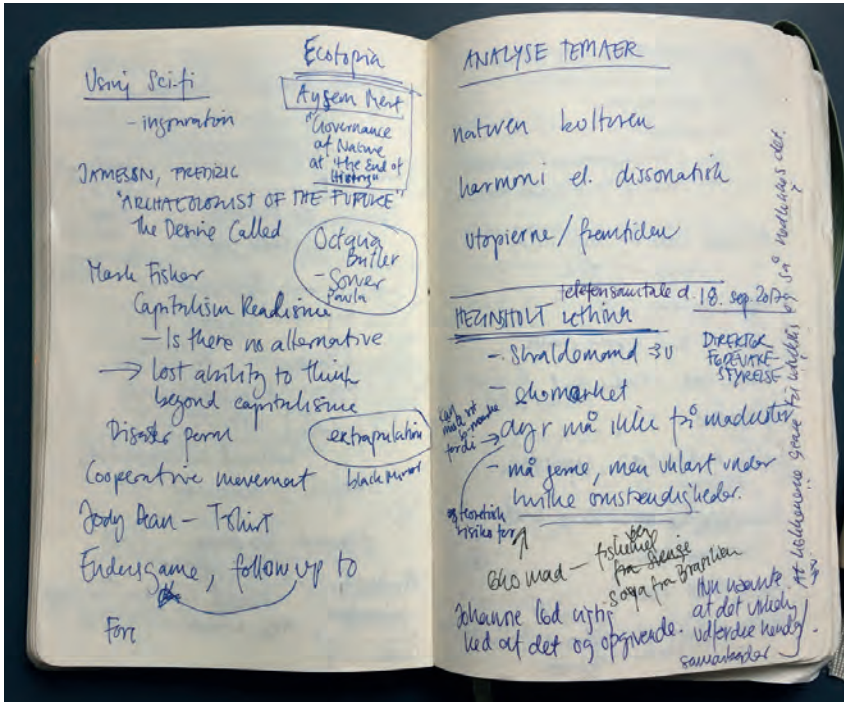 Using Sci-fi
- inspiration
Ecotopia
Aysem Mert
"Governance
of Nature
at "the End of
History"
JAMESON, FREDRIC
"ARCHAEOLOGIST OF THE FUTURE"
The Desire Called
Octavia
Butler
- Sower
Mark Fisher
Capitalism Realisme
- Is there no alternative
→ Lost ability to think
beyond capitalisme
Disaster
extrapolation
black Mirror
Cooperative movement
Jody Dean - T-shirt
Endersgame, follow up to
For
ANALYSE TEMAER
naturen kulturen
harmoni el. dissonatisk
utopierne / fremtiden
telefonsamtale d. 18. sep. 2017
DIREKTØR
FØDEVARE-
STYRELSE
- Skraldemand
- økomærket
→ dyr må ikke få madrester
fordi
- må gerne, men uklart under
hvilke omstændigheder.
og teoretisk
risiko for
Øko mad - fiskemel
fra Sverige
soya fra Brasilien
Johanne lød rigtig
ked af det og opgivende.
Hun nævnte
at det virkelig
udfordre hendes
samarbejder